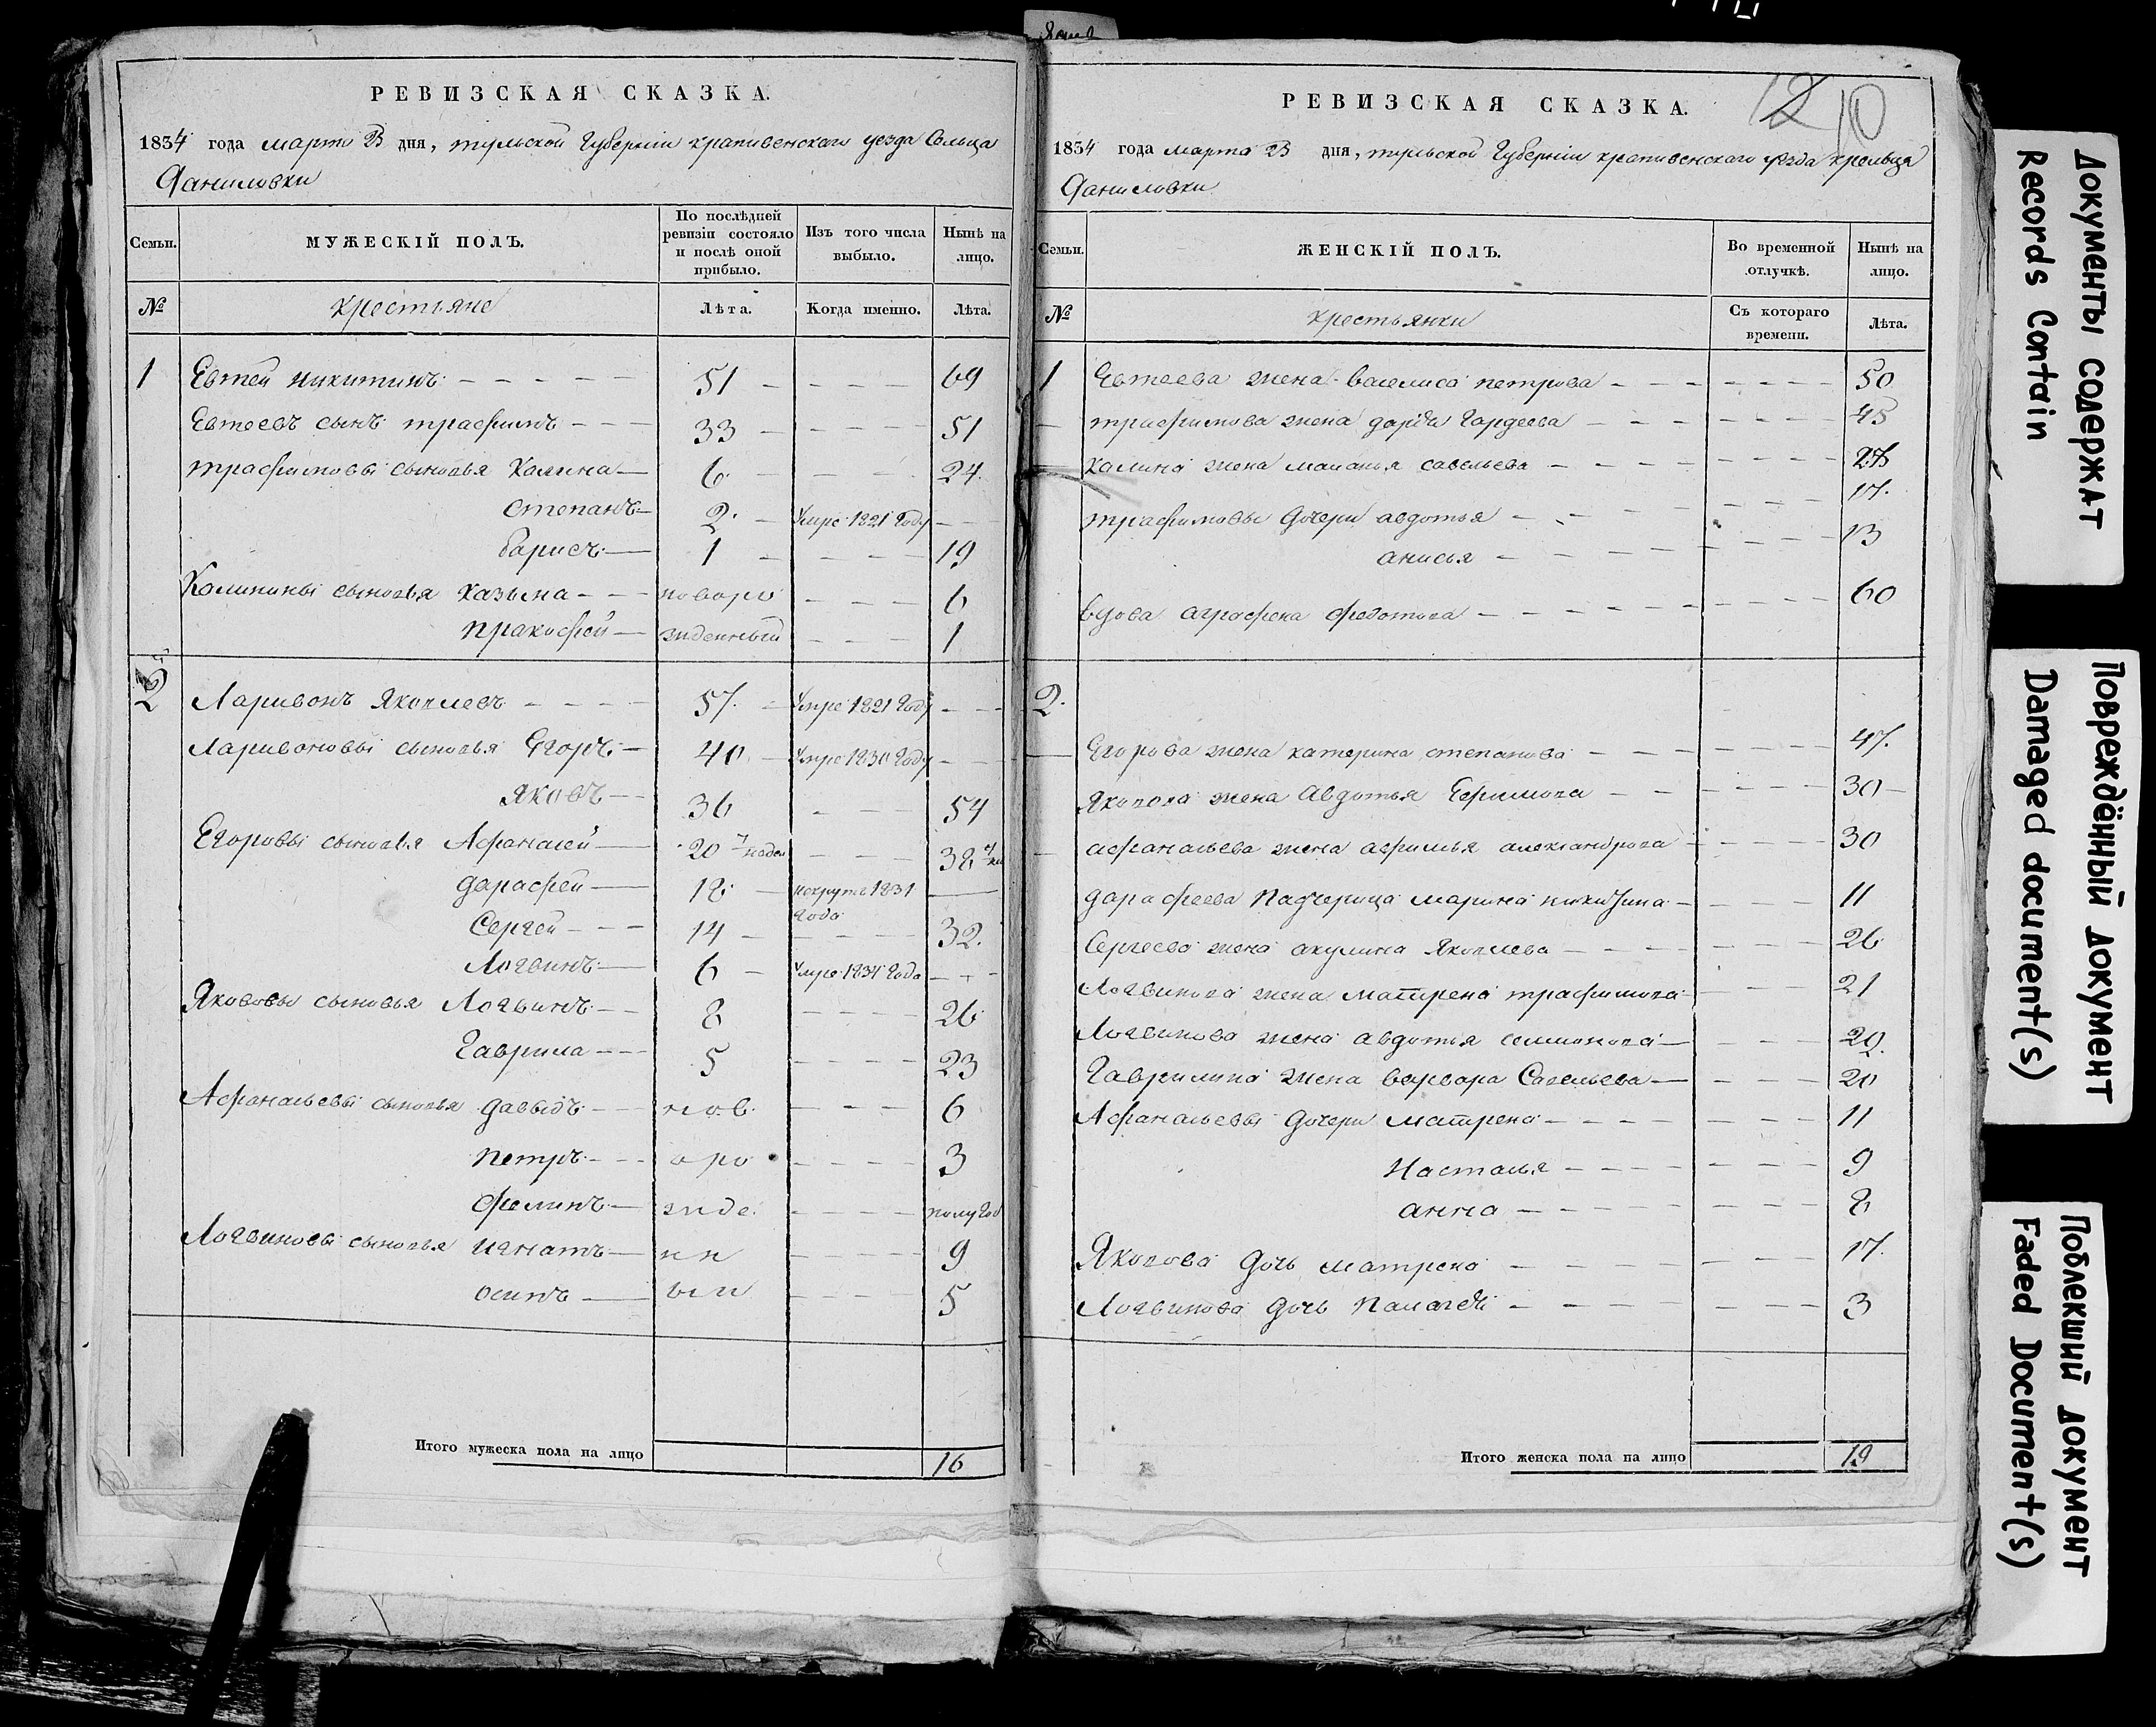 РЕВИЗСКАЯ СКАЗКА.
1834 года марта 23 дня, тульской Губернии крапивенского уезда Сельца
Даниловки
Семьи.
МУЖЕСКІЙ ПОЛЪ.
По послѣдней ревизіи состояло и послѣ оной прибыло.
Изъ того числа выбыло.
Нынѣ на лицо.
№ крестьяне Лѣта. Когда именно. Лѣта.
1 Евтей никитинъ 51 69
Евтеевъ сынъ трафимъ 33 51
трафимовы сыновья Калина 6 24
степанъ 2 Умре 1821 Году
барисъ 1 19
Калинины сыновья казьма новоро 6
пракофей жденный 1
2 Ларивонъ Яковлевъ 57 Умре 1821 Году
Ларивоновы сыновья Егоръ 40 Умре 1830 Году
Яковъ 36 54
Егоровы сыновья Афанасей 20 38
дарафей 18 1831
Года
Сергей 14 32
Логвинъ 6 Умре 1834 Года
Яковвы сыновья Логвинъ 8 26
Гаврила 5 23
Афанасьевы сыновья давыдъ нов 6
петръ оро 3
филипъ жде полугод
Логвиновы сыновья игнатъ нн 9
осипъ ыи 5
Итого мужеска пола на лицо 16
РЕВИЗСКАЯ СКАЗКА.
12 10
1834 года марта 23 дня, тульской Губернии крапивенского уезда
Даниловки
Семьи.
ЖЕНСКІЙ ПОЛЪ.
Во временной отлучкѣ.
Нынѣ на лицо.
№ крестьянки Съ котораго времени. Лѣта.
1 Евтеева жена василиса петрова 50
трафимова жена дарья Гардеева 45
калина жена маланья савельева
трафимовы дочери авдотья 17
анисья 13
вдова аграфена федотова 60
2.
Егорова жена катерина степанова 47
Якопова жена Авдотья Ефимова 30
афанасьева жена афимья александрова 30
дарафеева Падчерица марина никитина 11
Сергеева жена акулина Яковлева 26
Логвинова жена матрена трафимова 21
Логвинова жена авдотья семионова 20
Гаврилина жена варвара Савельева 20
Афанасьевы дочери матрена 11
Настасья 9
анна 8
Якопова дочь матрена 17
Логвинова дочь Палагея 3
Итого женска пола на лицо 19
Документы содержат
Records Contain
Повреждённый документ
Damaged document(s)
Поблекший документ
Faded Document(s)